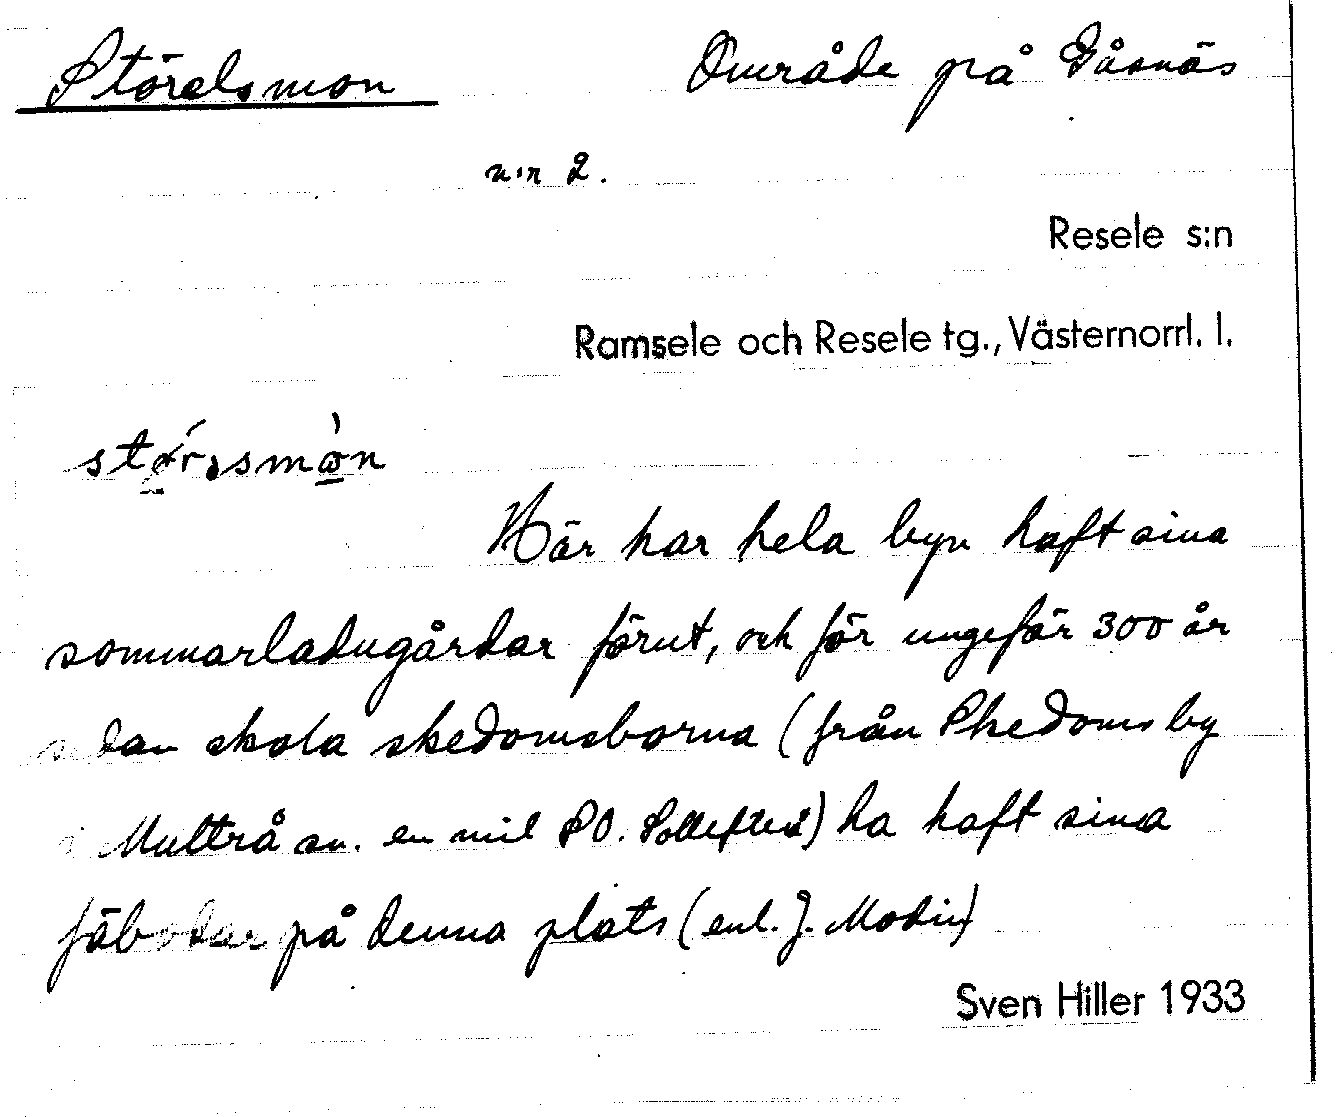 Störelsmon Område på Gåsnäs
n:r 2.
Resele s:n
Ramsele och Resele tg., Västernorrl. l.
Här har hela byn haft sina
sommarladugårdar förut, och för ungefär 300 år
sedan skola skedomsborna (från Skedoms by
i Multrå sn. en mil SO. Sollefteå) ha haft sina
fäbodar på denna plats (enl. J. Modin)
Sven Hiller 1933